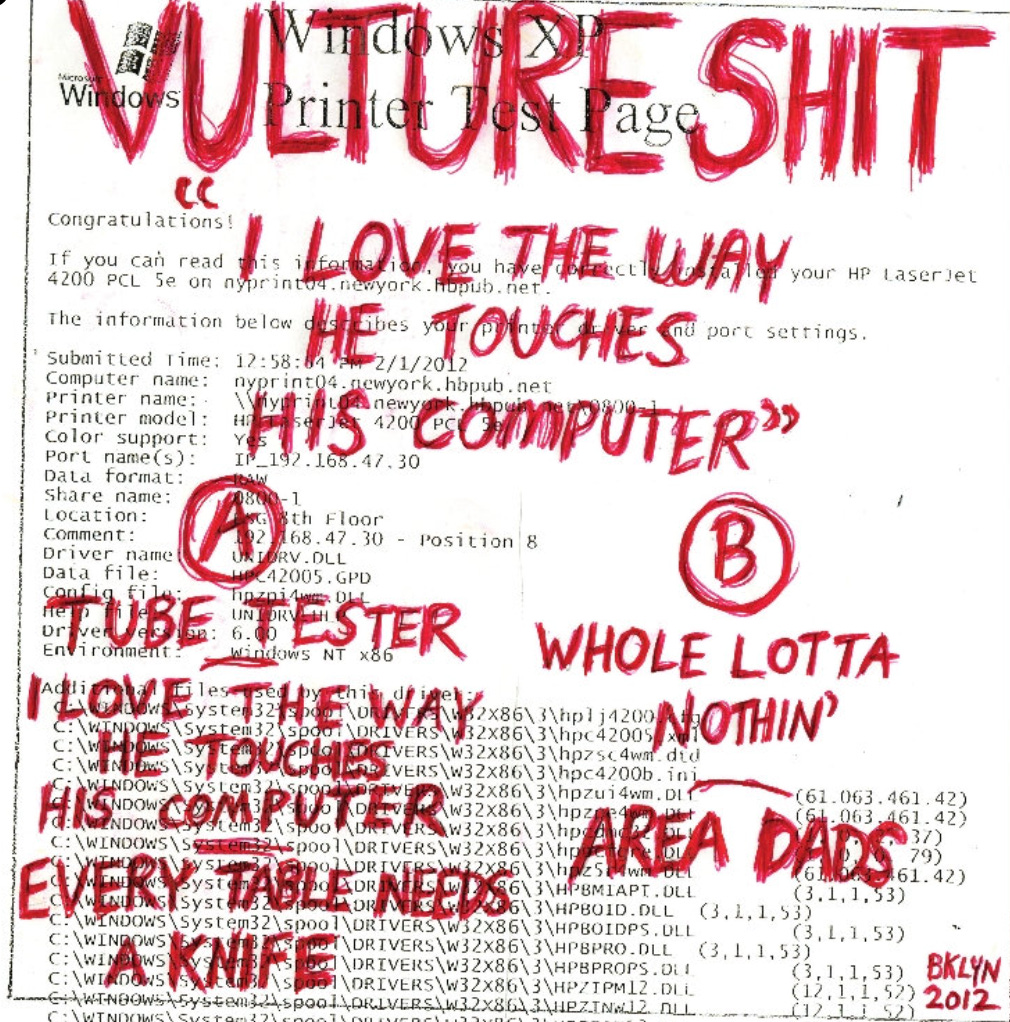 VULTURE SHIT
Microsoft
Windows
Windows XP
Printer Test Page
Congratulations!
"I LOVE THE WAY
HE TOUCHES
HIS COMPUTER"
If you can read this information, you have correctly installed your HP LaserJet
4200 PCL 5e on nyprint04.newyork.hbpub.net.
The information below describes your printer driver and port settings.
Submitted Time: 12:58: PM 2/1/2012
Computer name: nyprint04.newyork.hbpub.net
Printer name: \\nyprint04.newyork.hbpub.net\0800-1
Printer model: HP LaserJet 4200 PCL 5e
Color support: Yes
Port name(s): IP_192.168.47.30
Data format: RAW
Share name: 0800-1
Location: 8th Floor
Comment: 192.168.47.30 - Position 8
Driver name: UNIDRV.DLL
Data file: HPC42005.GPD
Config file: hpzpi4wm.DLL
Help file: UNIDRV.HLP
Driver version: 6.00
Environment: Windows NT x86
A
TUBE TESTER
I LOVE THE WAY
HE TOUCHES
HIS COMPUTER
EVERY TABLE NEEDS
A KNIFE
B
WHOLE LOTTA
NOTHIN'
AREA DADS
Additional files used by this driver:
C:\WINDOWS\System32\spool\DRIVERS\W32X86\3\hplj4200.cfg
C:\WINDOWS\System32\spool\DRIVERS\W32X86\3\hpc42005.xml
C:\WINDOWS\System32\spool\DRIVERS\W32X86\3\hpzsc4wm.dtd
C:\WINDOWS\System32\spool\DRIVERS\W32X86\3\hpc4200b.ini
C:\WINDOWS\System32\spool\DRIVERS\W32X86\3\hpzui4wm.DLL (61.063.461.42)
C:\WINDOWS\System32\spool\DRIVERS\W32X86\3\ (61.063.461.42)
C:\WINDOWS\System32\spool\DRIVERS\W32X86\3\ 37)
C:\WINDOWS\System32\spool\DRIVERS\W32X86\3\ 79)
C:\WINDOWS\System32\spool\DRIVERS\W32X86\3\ (61.063.461.42)
C:\WINDOWS\System32\spool\DRIVERS\W32X86\3\HPBMIAPI.DLL (3,1,1,53)
C:\WINDOWS\System32\spool\DRIVERS\W32X86\3\HPBOID.DLL (3,1,1,53)
C:\WINDOWS\System32\spool\DRIVERS\W32X86\3\HPBOIDPS.DLL (3,1,1,53)
C:\WINDOWS\System32\spool\DRIVERS\W32X86\3\HPBPRO.DLL (3,1,1,53)
C:\WINDOWS\System32\spool\DRIVERS\W32X86\3\HPBPROPS.DLL (3,1,1,53)
C:\WINDOWS\System32\spool\DRIVERS\W32X86\3\HPZIPM12.DLL (12,1,1,52)
C:\WINDOWS\System32\spool\DRIVERS\W32X86\3\HPZINW12.DLL (12,1,1,52)
BKLYN
2012